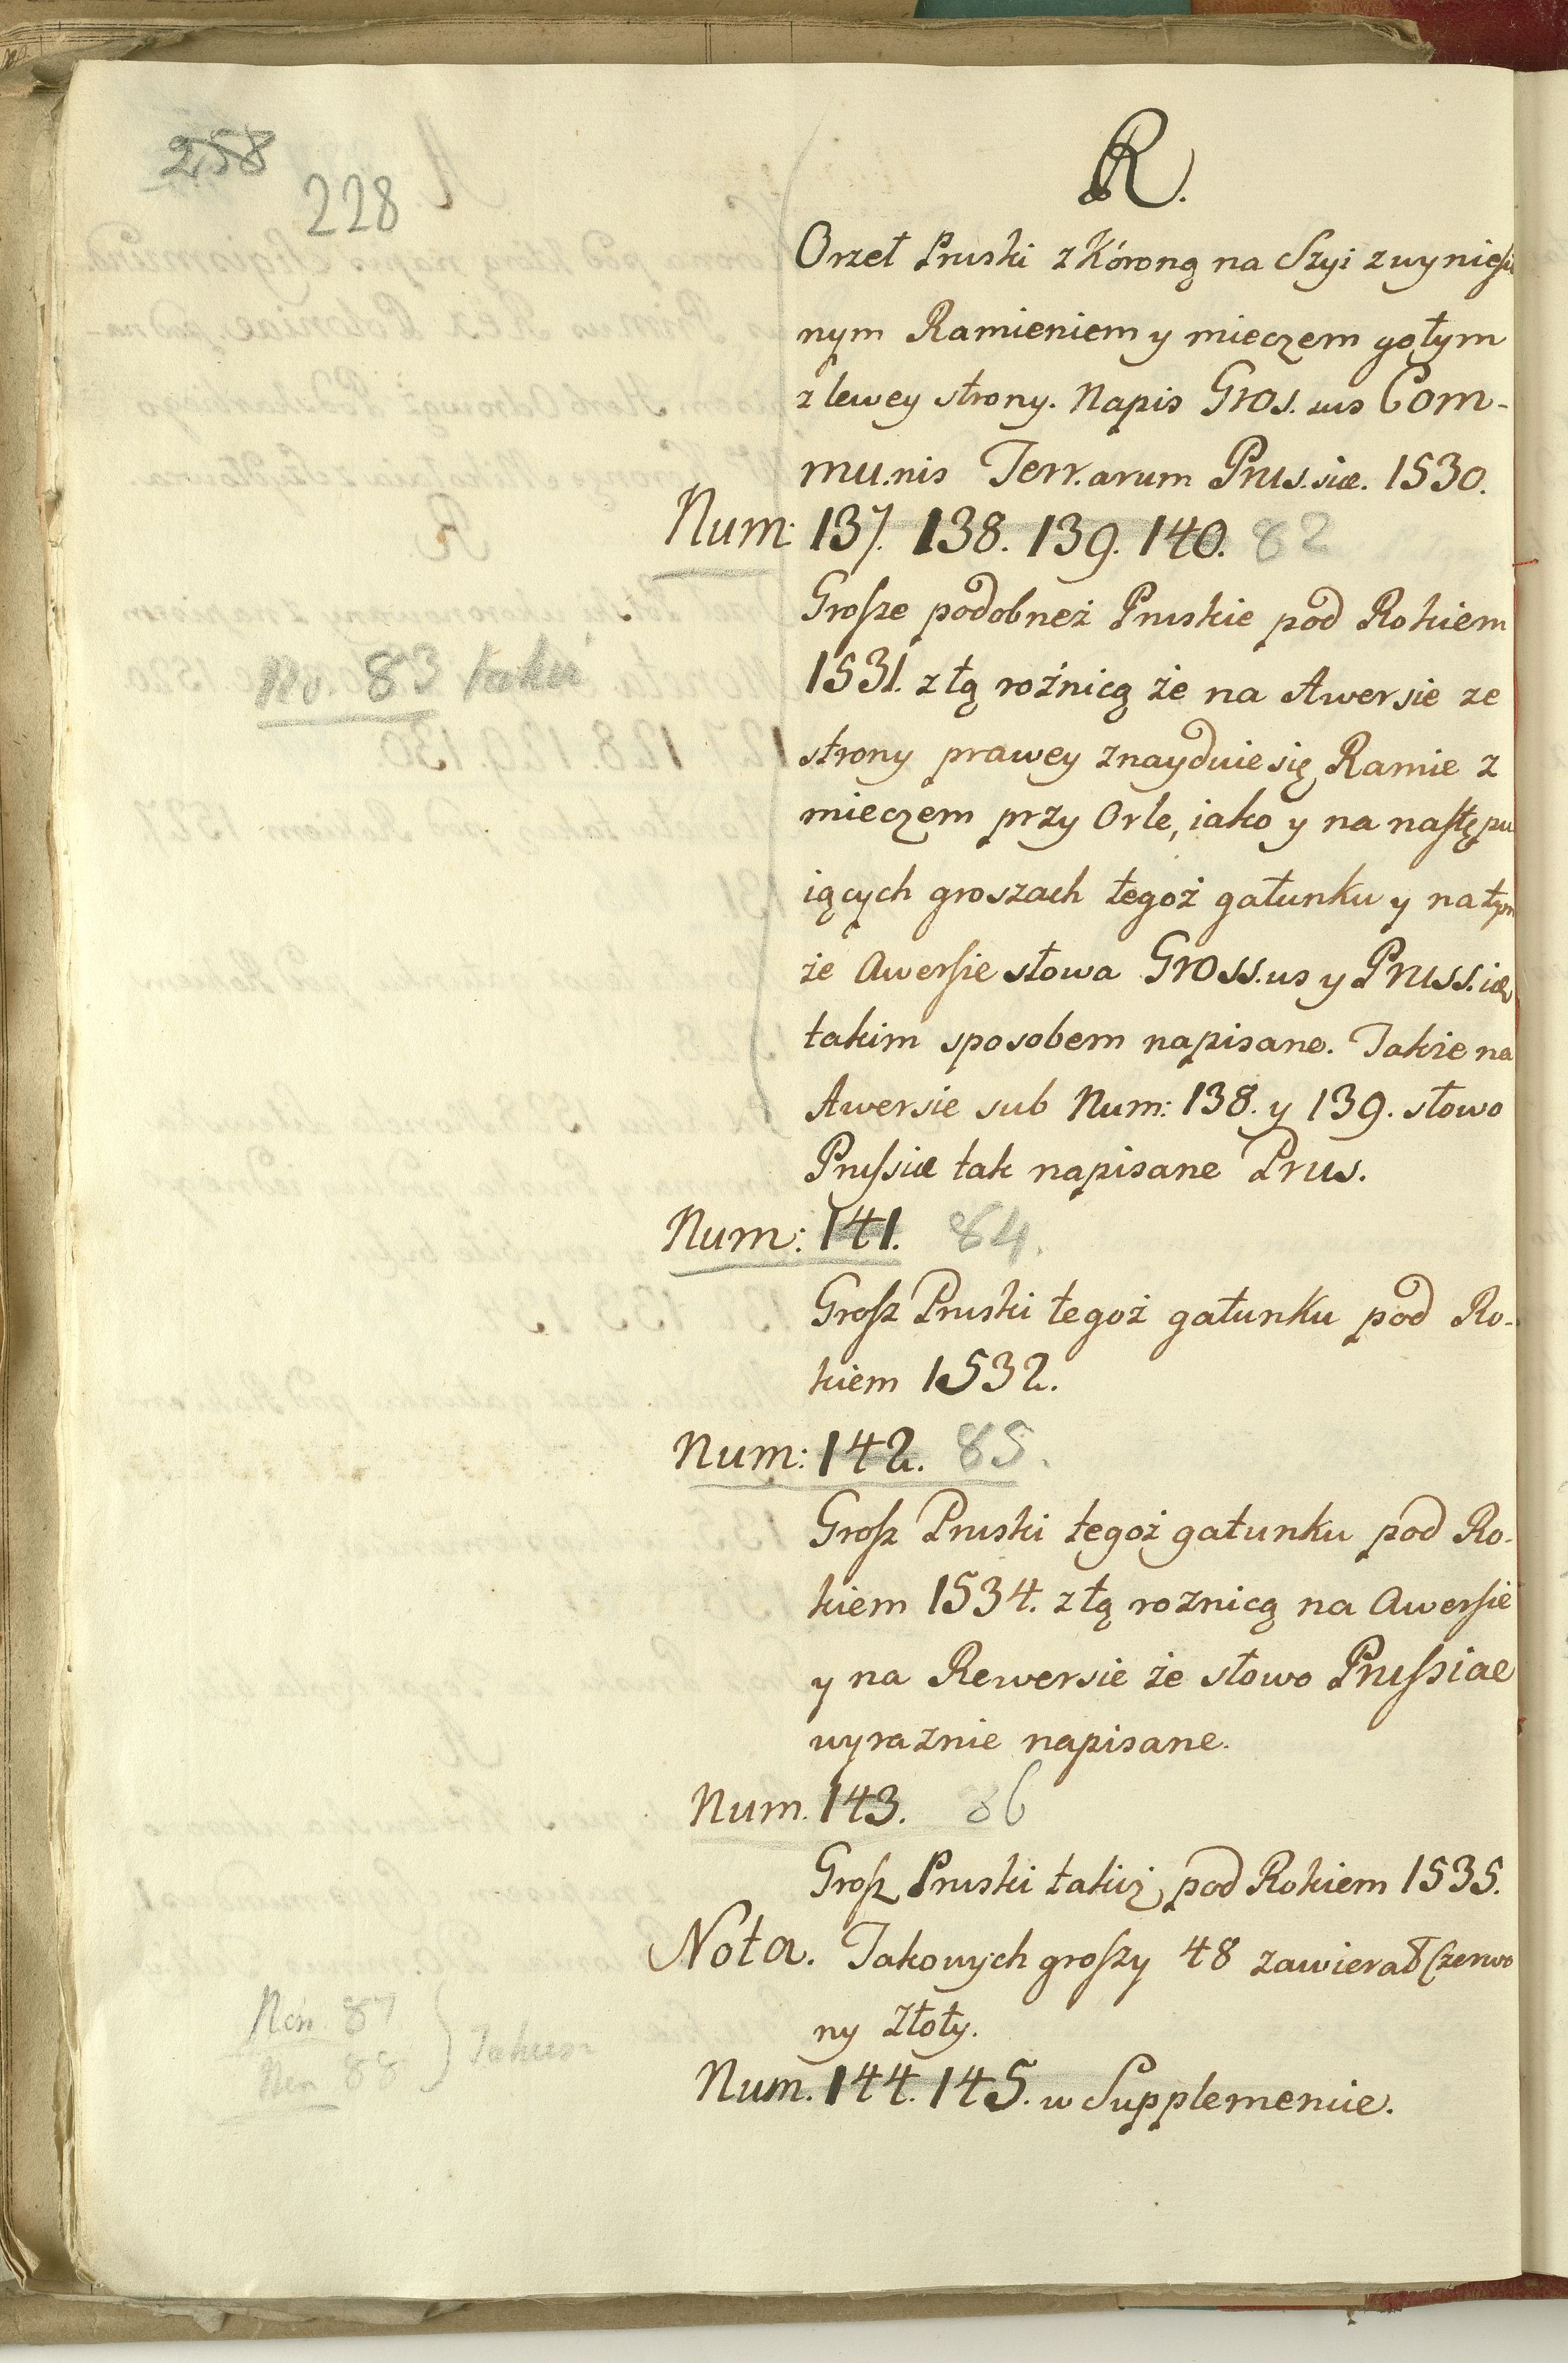 258
228
R.
Orzeł Pruski z Kóroną na Szyi z wyniesio
nym Ramieniem y mieczem gołym
z lewey strony. Napis Gros. sus Com-
mu.nis Terr.arum Prus.siæ. 1530.
Num: 137. 138. 139. 140. 82
Grosze podobneż Pruskie pod Rokiem
No. 83 taki
1531. z tą rożnicą że na Awersie ze
strony prawey znayduie się Ramie z
mieczem przy Orle, iako y na nastę pu
iących groszach tegoż gatunku y na tym
że Awersie słowa Gross.us y Pruss.iæ
takim sposobem napisane. Takie na
Awersie sub Num: 138. y 139. słowo
Prussiæ tak napisane Prus.
Num: 141. 84.
Grosz Pruski tegoż gatunku pod Ro-
kiem 1532.
Num: 142. 85.
Grosz Pruski tegoż gatunku pod Ro-
kiem 1534. z tą roznicą na Awersie
y na Rewersie że słowo Prussiae
wyraznie napisane.
Num. 143. 86
Grosz Pruski takiż pod Rokiem 1535.
Nota. Takowych groszy 48 zawierał Czerwo
ny Złoty.
87
88
Num. 144. 145. w Supplemencie.